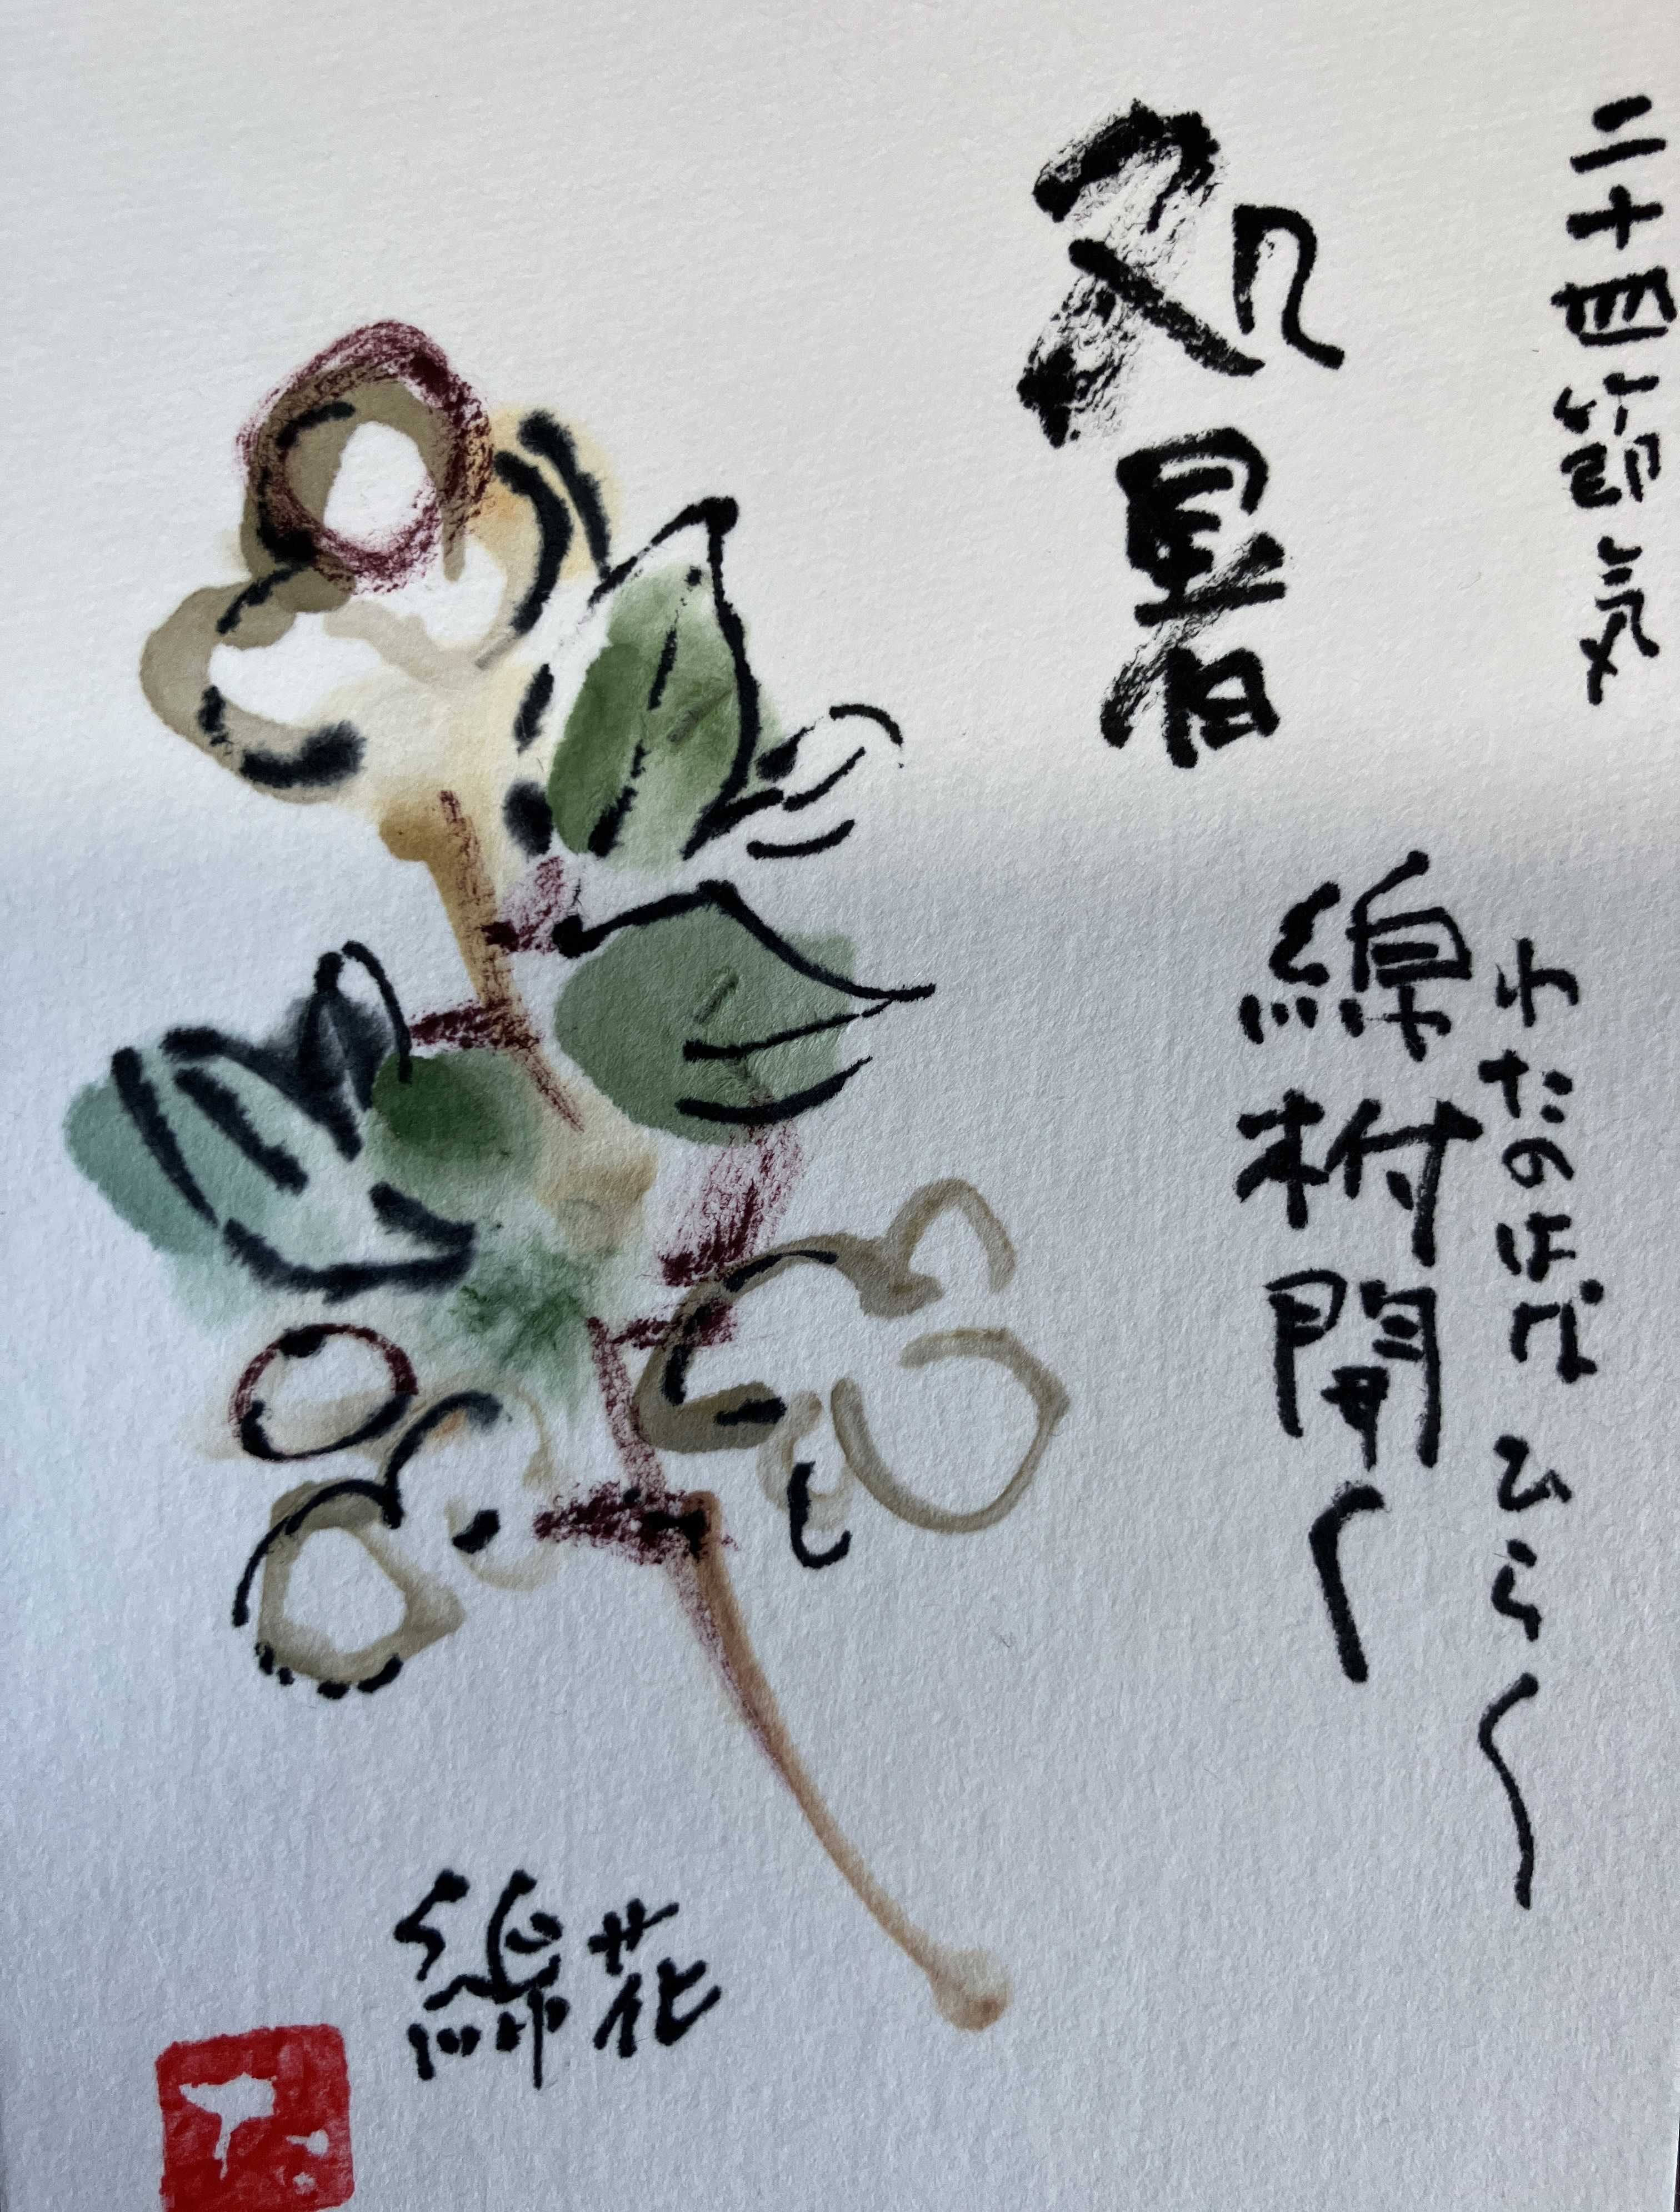 二十四節気
処暑
わたのはな ひらく
綿柎開く
綿花